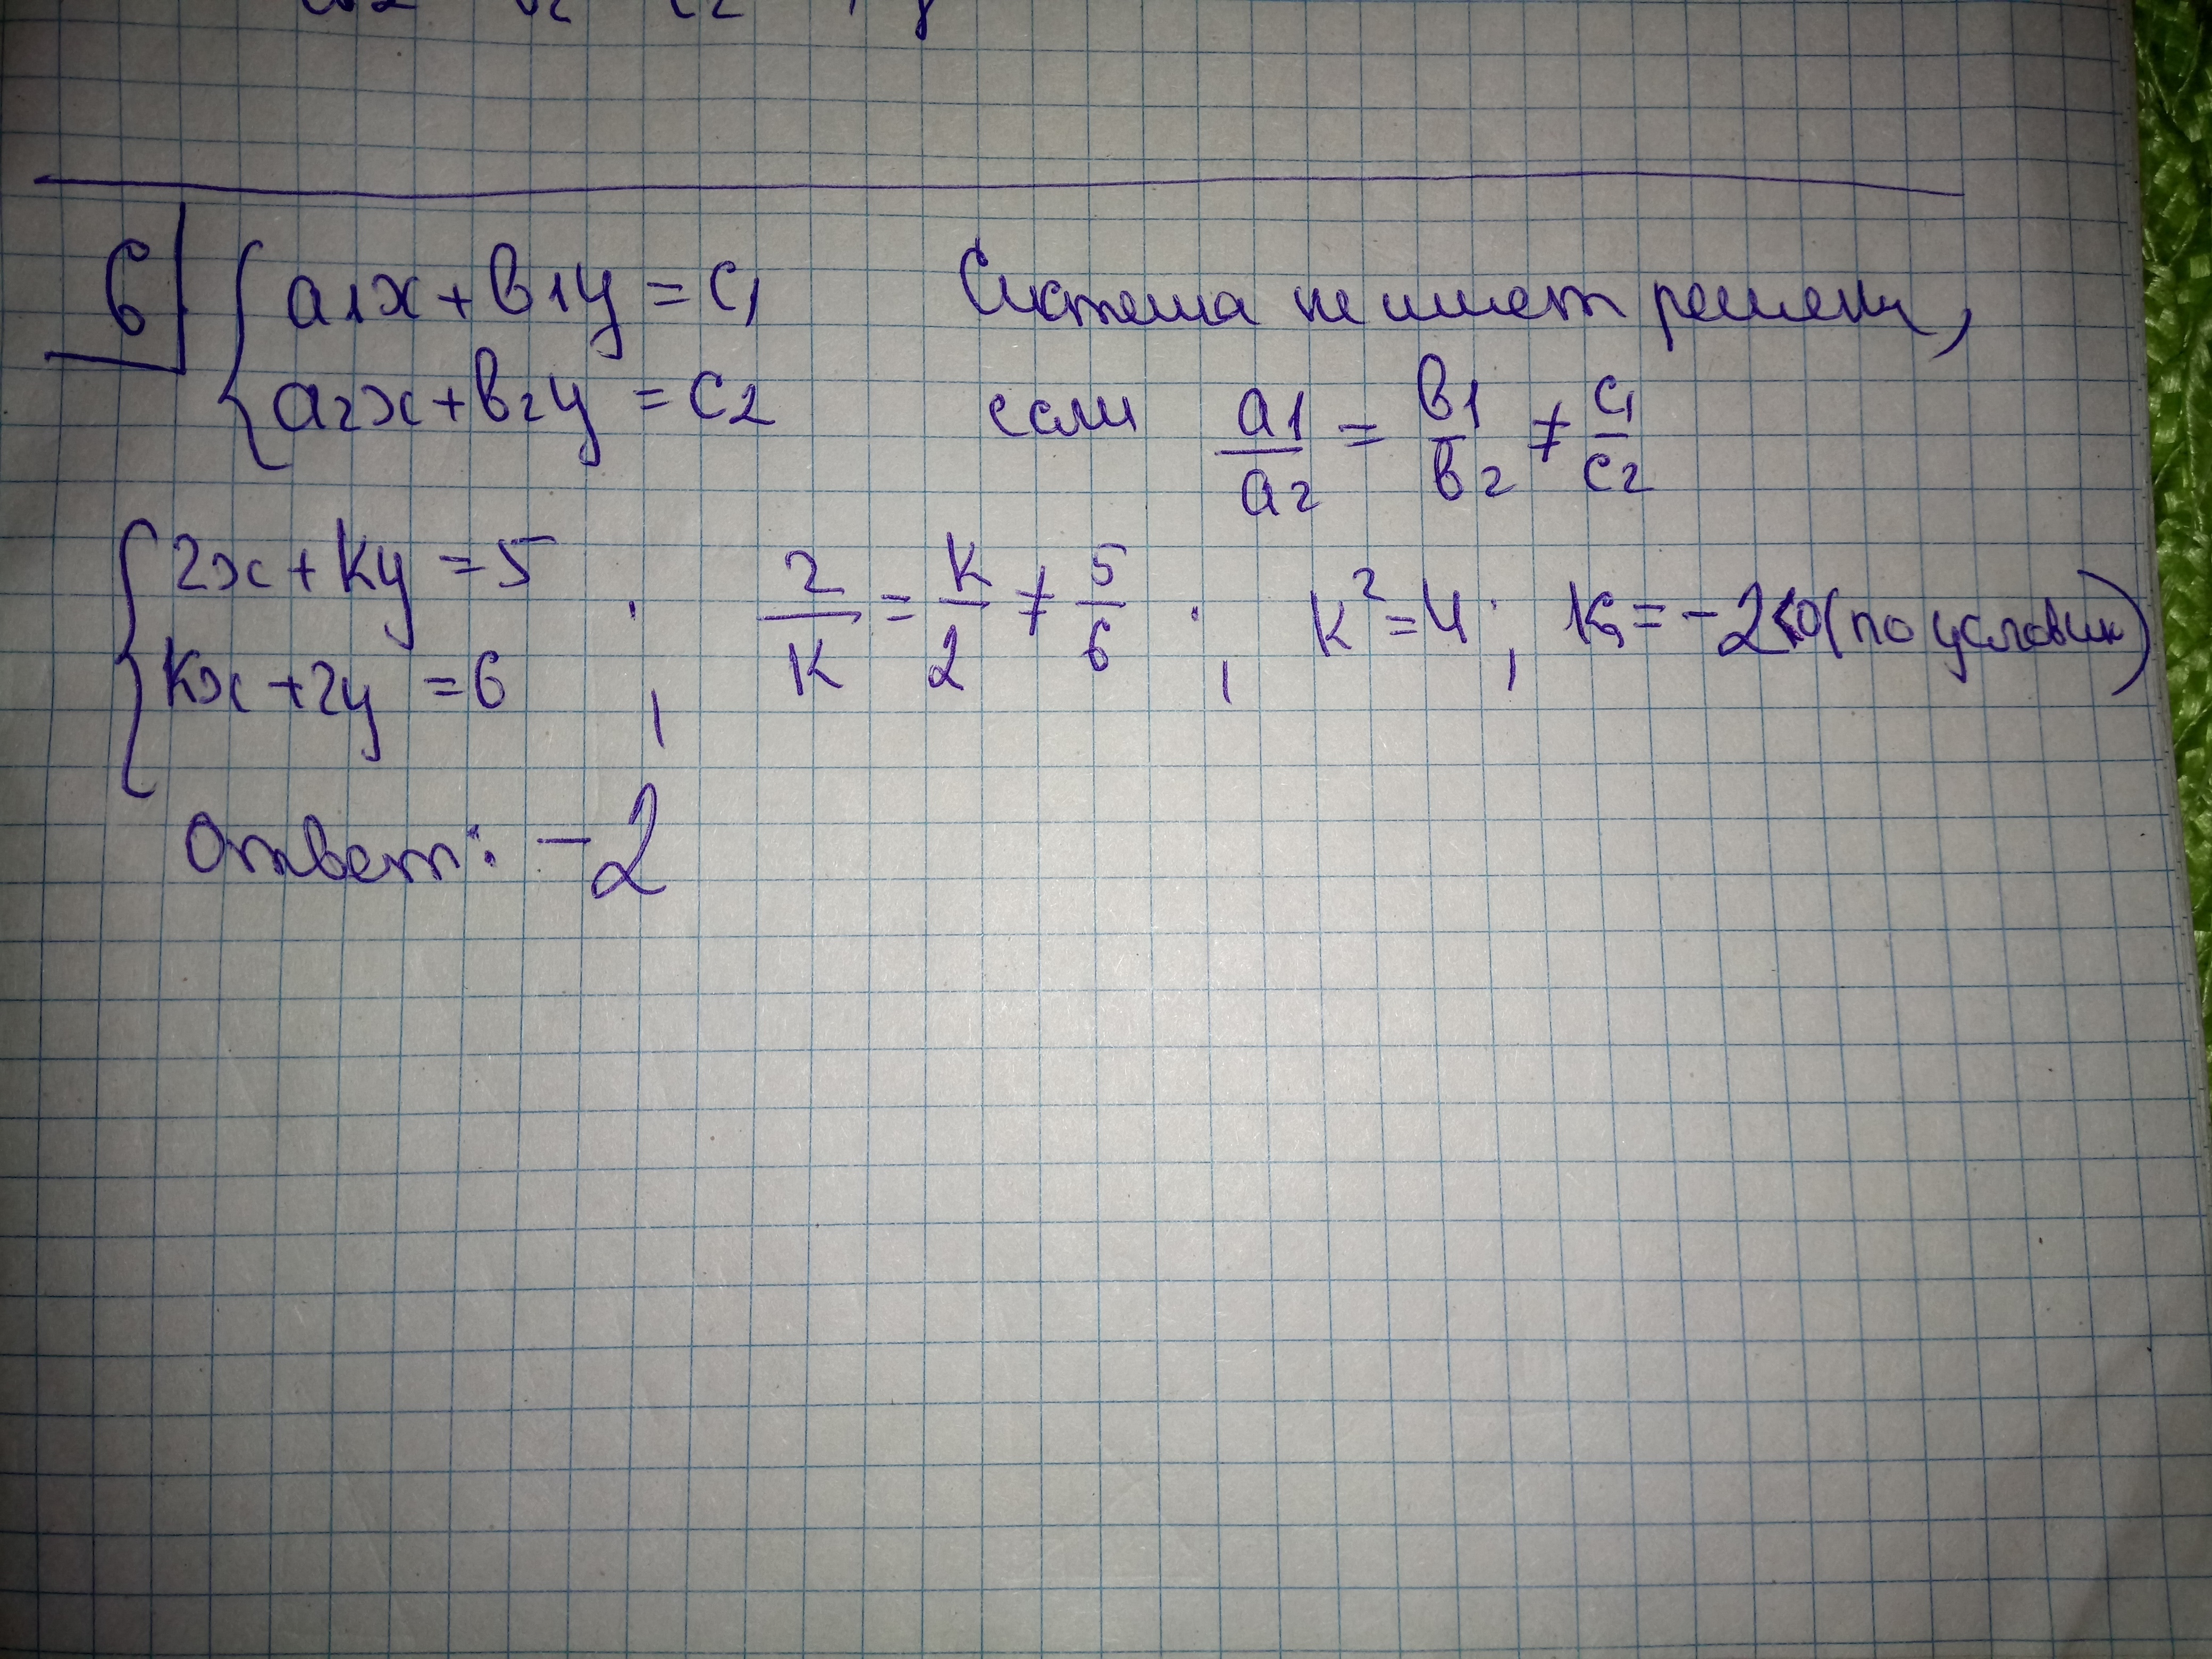 6
{ a1x + b1y = c1
a2x + b2y = c2
Система не имеет решени,
если a1/a2 = b1/b2 ≠ c1/c2
{ 2x + ky = 5
kx + 2y = 6 ;
2/k = k/2 ≠ 5/6 ; k² = 4 ; k = -2<0 (по условию)
Ответ: -2